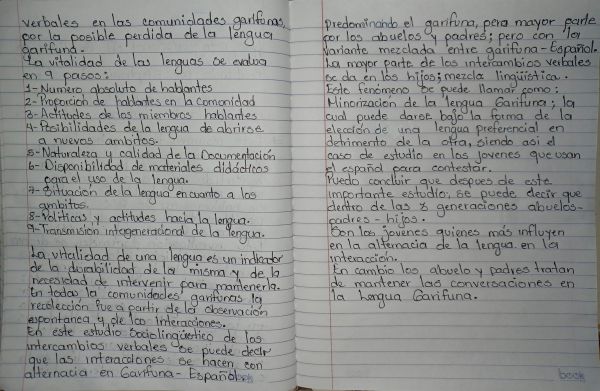 verbales en las comunidades garifunas,
por la posible perdida de la lengua
garifuna.
La vitalidad de las lenguas se evalua
en 9 pasos:
1-Numero absoluto de hablantes
2-Proporcion de hablantes en la comunidad
3-Actitudes de los miembros hablantes
4-Posibilidades de la lengua de abrirse
a nuevos ambitos.
5-Naturaleza y calidad de la Documentación
6-Disponibilidad de materiales didácticos
para el uso de la lengua.
7-Situación de la lengua en cuanto a los
ambitos.
8-Politicas y actitudes hacia la lengua.
9-Transmisión intergeneracional de la lengua.
La vitalidad de una lengua es un indicador
de la durabilidad de la misma y de la
necesidad de intervenir para mantenerla.
En todas la comunidades garifunas la
recolección fue a partir de la observación
espontanea y de las Interacciones.
En este estudio Sociolingüístico de los
intercambios verbales se puede decir
que las interacciones se hacen con
alternacia en Garifuna-Español.
predominando el garifuna, pero mayor parte
por los abuelos y padres; pero con la
variante mezclada entre garifuna-Español.
La mayor parte de los intercambios verbales
se da en los hijos; mezcla lingüistica.
Este fenómeno se puede llamar como:
Minorización de la lengua Garifuna; la
cual puede darse bajo la forma de la
elección de una lengua preferencial en
detrimento de la otra, siendo asi el
caso de estudio en los jovenes que usan
el español para contestar.
Puedo concluir que despues de este
importante estudio, se puede decir que
dentro de las 3 generaciones abuelos-
padres-hijos.
Son los jovenes quienes más influyen
en la alternacia de la lengua en la
interacción.
En cambio los abuelo y padres tratan
de mantener las conversaciones en
la Lengua Garifuna.
book